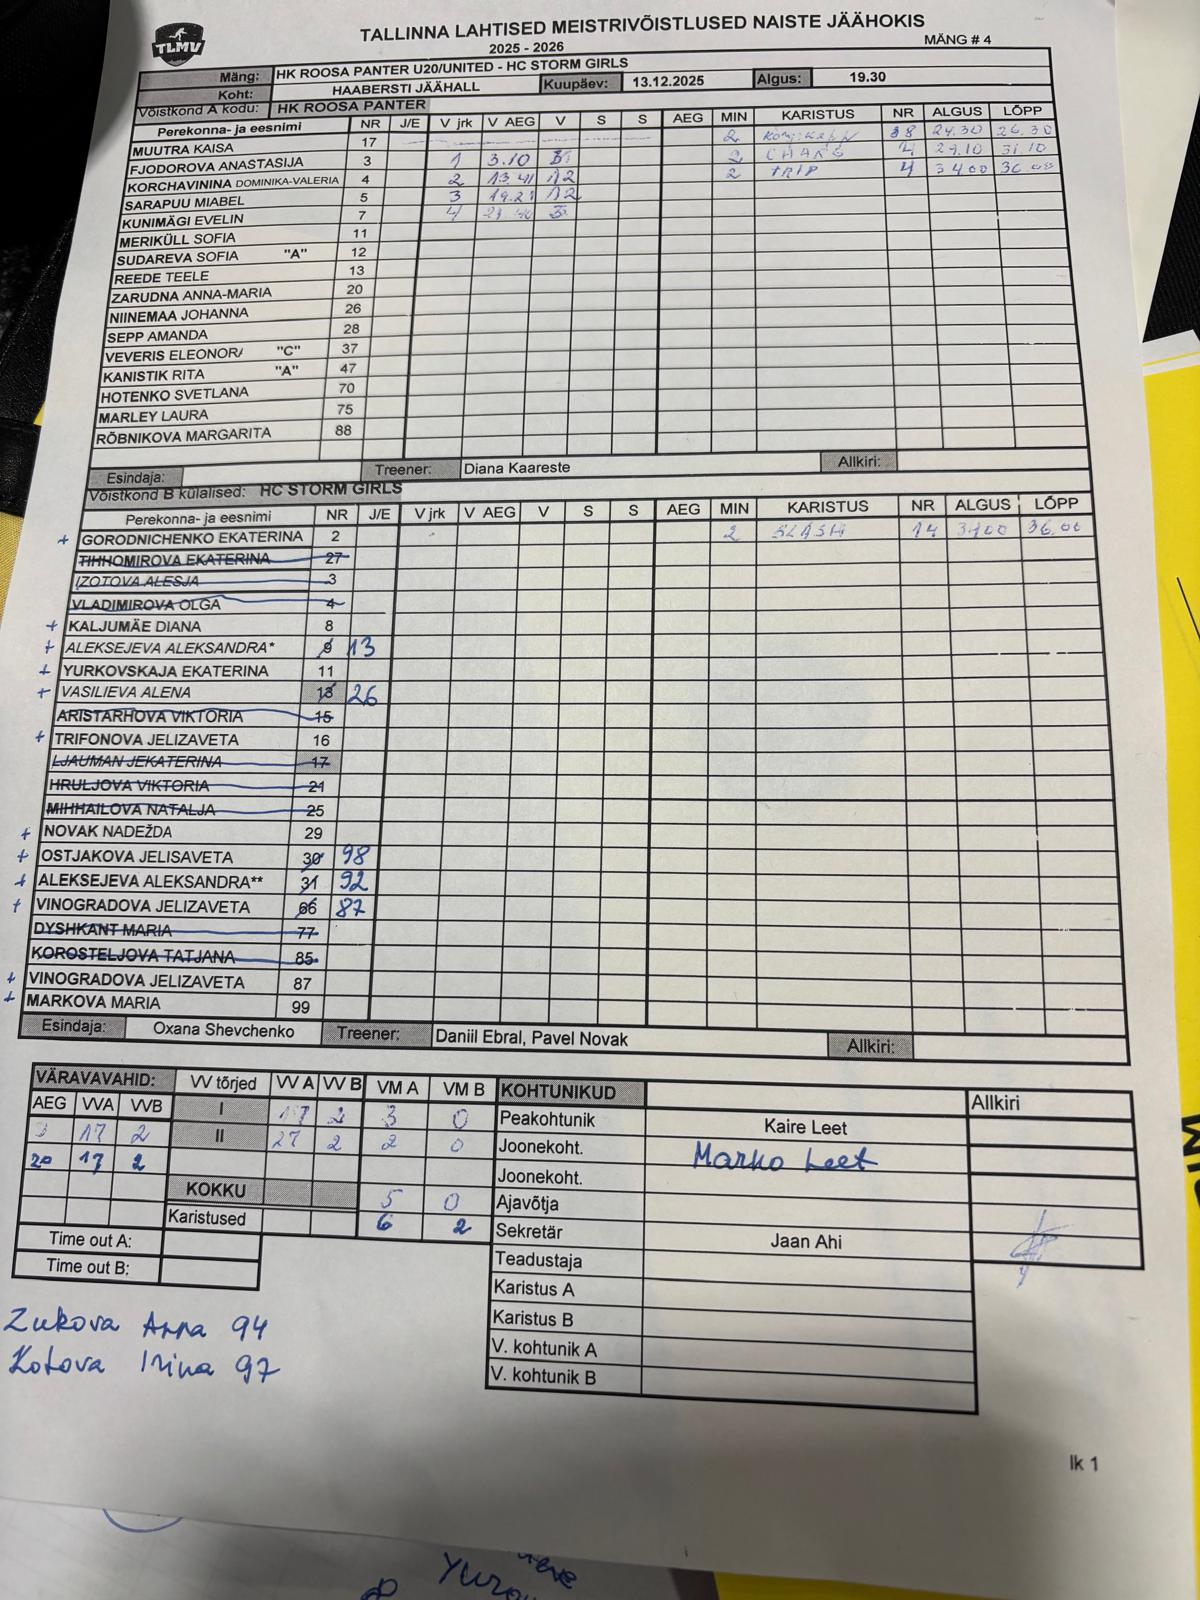 TLMV
TALLINNA LAHTISED MEISTRIVÕISTLUSED NAISTE JÄÄHOKIS
2025 - 2026 MÄNG # 4
Mäng: HK ROOSA PANTER U20/UNITED - HC STORM GIRLS
Koht: HAABERSTI JÄÄHALL Kuupäev: 13.12.2025 Algus: 19.30
Võistkond A kodu: HK ROOSA PANTER
Perekonna- ja eesnimi NR J/E V jrk V AEG V S S AEG MIN KARISTUS NR ALGUS LÕPP
MUUTRA KAISA 17 2 88 24.30 26.30
FJODOROVA ANASTASIJA 3 1 3.10 2 29.10 31.10
KORCHAVININA DOMINIKA-VALERIA 4 2 13.41 2 TRIP 4 34.00 36.00
SARAPUU MIABEL 5 3 19.21
KUNIMÄGI EVELIN 7 4
MERIKÜLL SOFIA 11
SUDAREVA SOFIA "A" 12
REEDE TEELE 13
ZARUDNA ANNA-MARIA 20
NIINEMAA JOHANNA 26
SEPP AMANDA 28
VEVERIS ELEONORA "C" 37
KANISTIK RITA "A" 47
HOTENKO SVETLANA 70
MARLEY LAURA 75
RÕBNIKOVA MARGARITA 88
Esindaja: Treener: Diana Kaareste Allkiri:
Võistkond B külalised: HC STORM GIRLS
Perekonna- ja eesnimi NR J/E V jrk V AEG V S S AEG MIN KARISTUS NR ALGUS LÕPP
+ GORODNICHENKO EKATERINA 2 2 SLASH 14 34.00 36.00
TIHHOMIROVA EKATERINA 27
IZOTOVA ALESJA 3
VLADIMIROVA OLGA 4
+ KALJUMÄE DIANA 8
+ ALEKSEJEVA ALEKSANDRA* 9 13
+ YURKOVSKAJA EKATERINA 11
+ VASILIEVA ALENA 13 26
ARISTARHOVA VIKTORIA 15
+ TRIFONOVA JELIZAVETA 16
LJAUMAN JEKATERINA 17
HRULJOVA VIKTORIA 21
MIHHAILOVA NATALJA 25
+ NOVAK NADEŽDA 29
+ OSTJAKOVA JELISAVETA 30 98
+ ALEKSEJEVA ALEKSANDRA** 31 92
+ VINOGRADOVA JELIZAVETA 66 87
DYSHKANT MARIA 77
KOROSTELJOVA TATJANA 85
+ VINOGRADOVA JELIZAVETA 87
+ MARKOVA MARIA 99
Esindaja: Oxana Shevchenko Treener: Daniil Ebral, Pavel Novak Allkiri:
VÄRAVAVAHID: VV tõrjed VV A VV B VM A VM B KOHTUNIKUD Allkiri
AEG VVA VVB I 17 2 3 0 Peakohtunik Kaire Leet
17 2 II 27 2 2 0 Joonekoht. Marko Leet
20 17 2 Joonekoht.
KOKKU 5 0 Ajavõtja
Karistused 6 2 Sekretär Jaan Ahi
Time out A: Teadustaja
Time out B: Karistus A
Karistus B
V. kohtunik A
V. kohtunik B
Zukova Anna 94
Kotova Irina 97
lk 1